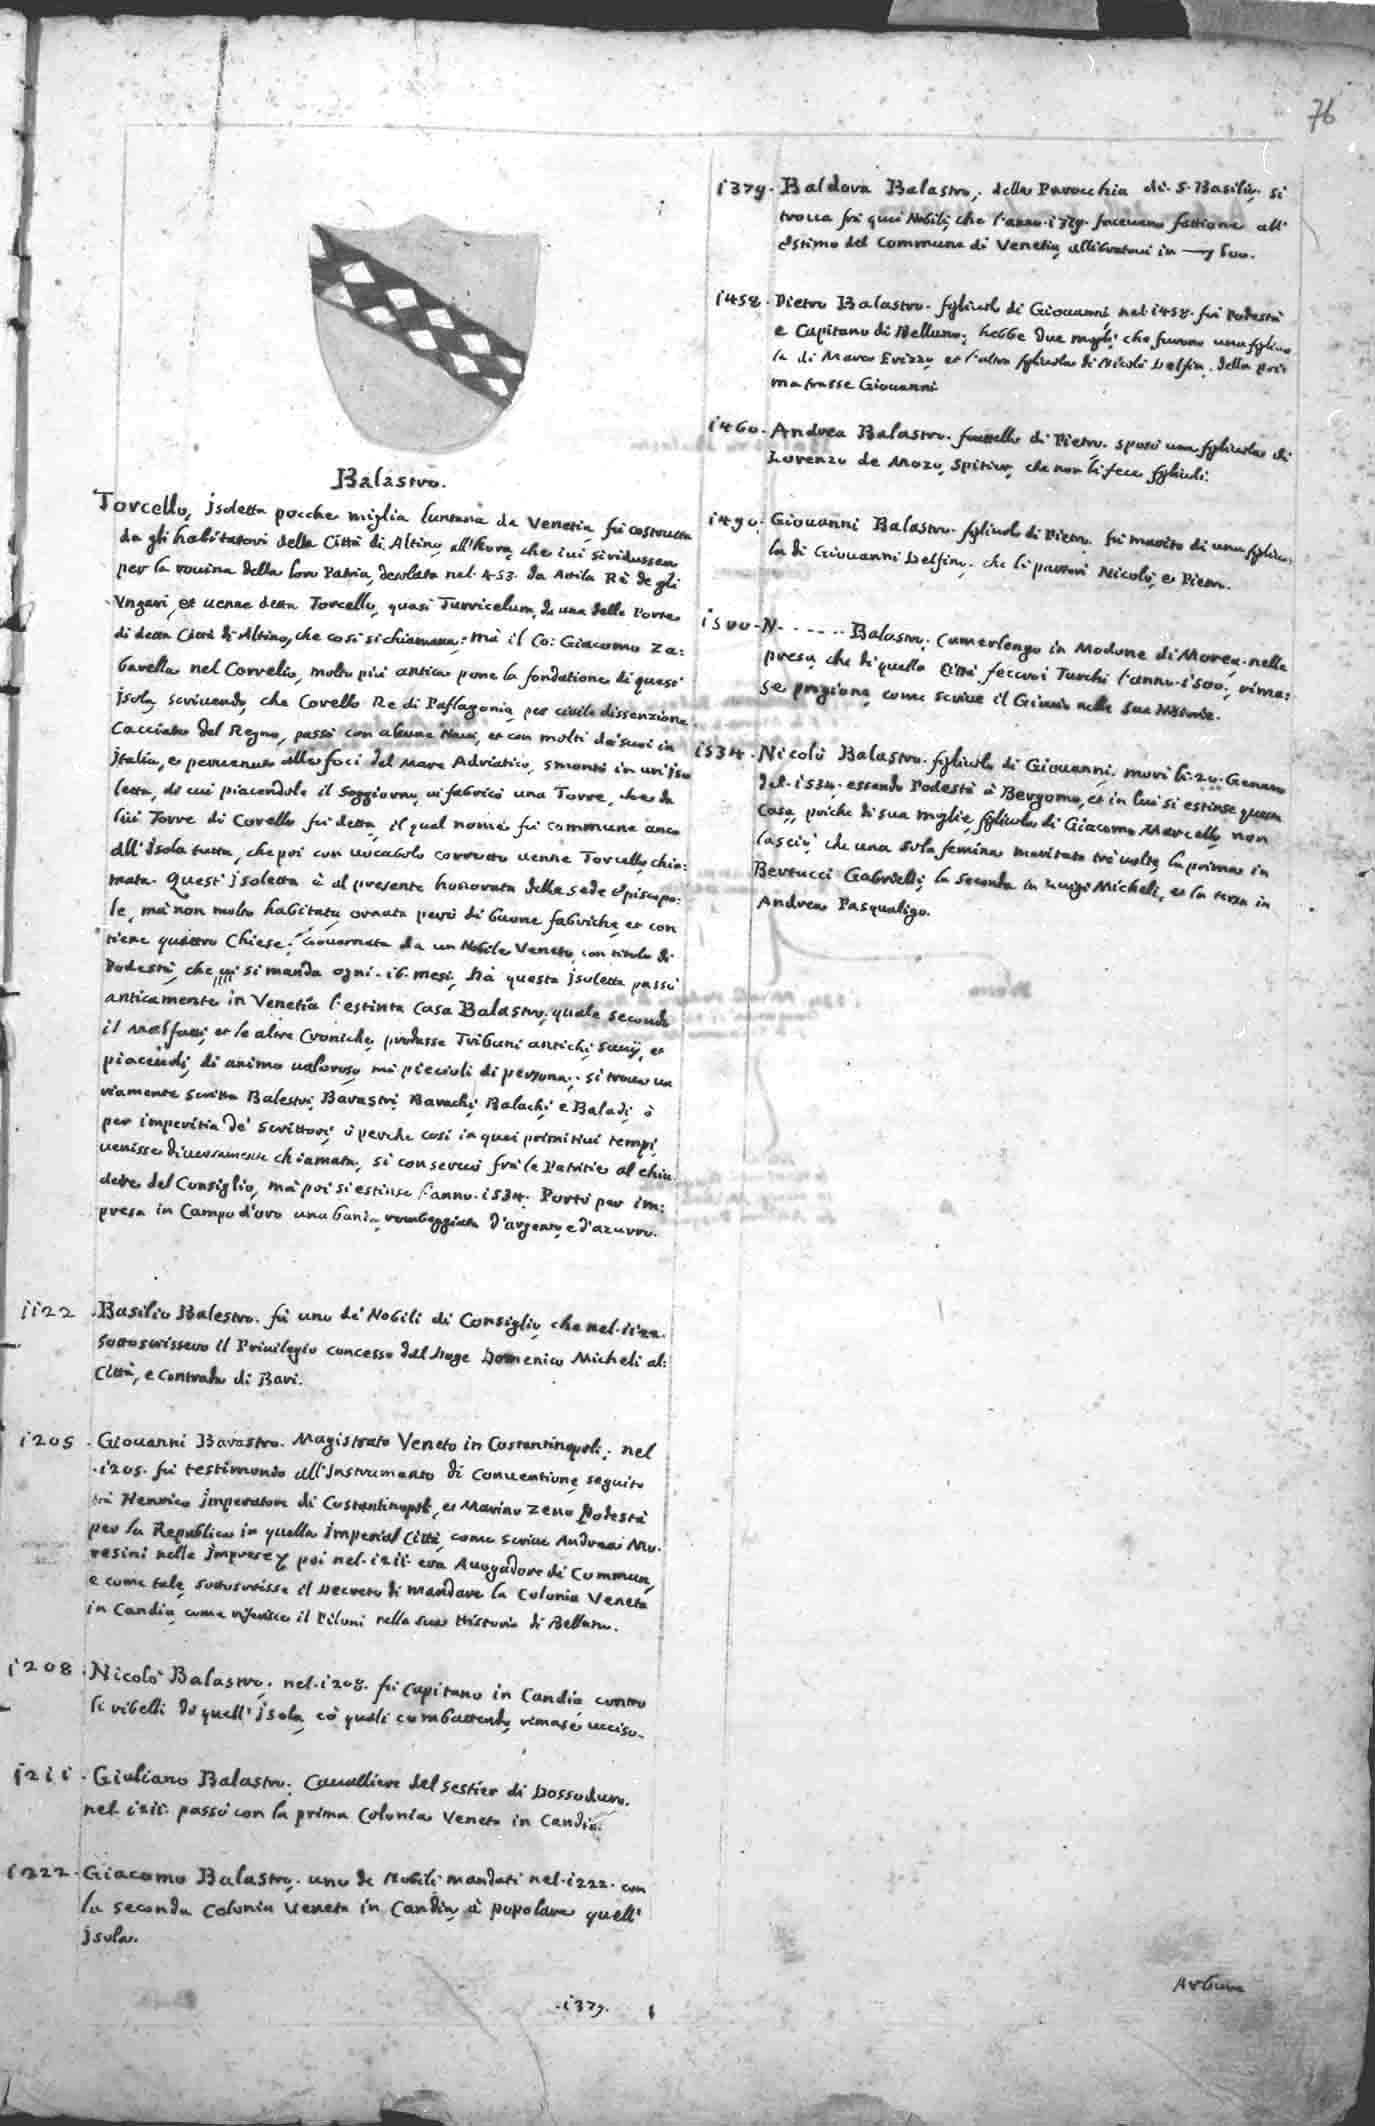 76
Balastro.
Torcello, jsoletta pocche miglia luntana da Venetia, fù costrutta
da gli habitatori della Città di Altino, all'hora, che iui si ridussero
per la rouina della loro Patria, desolata nel 453. da Attila Rè de gli
Vngari, et uenne detta Torcello, quasi Turricelum, da una delle Porte
di detta Città di Altino, che così si chiamaua: mà il Co: Giacomo Za:
barella nel Corvelio, molto più antica pone la fondatione di quest'
jsola, scriuendo, che Corello Re di Paflagonia, per ciuile dissenzione
Cacciato del Regno, passò con alcune Naui, et con molti de' suoi in
jtalia, et peruenuto alle foci del Mare Adriatico, smontò in un' jso
letta, di cui piacendole il soggiorno, ui fabricò una Torre, che da
lui Torre di Corello fù detta, il qual nome fù commune anco
all' jsola tutta, che poi con uocabolo corrotto uenne Torcello chia:
mata. Quest' jsoletta è al presente honorata della sede Episcopa:
le, mà non molto habitata, ornata però di buone fabriche, et con
tiene quattro Chiese. Gouernata da un Nobile Veneto, con titolo di
Podestà, che ui si manda ogni .16. mesi, Da questa jsoletta passò
anticamente in Venetia l'estinta Casa Balastro, quale secondo
il Malfatti, et le altre Croniche, produsse Tribuni antichi, sauij, et
piaceuoli, di animo ualoroso, mà piccioli di persona; si troua ua
riamente scritta Balestri, Barastri, Barachi, Balachi, e Baladi, ò
per imperitia de' scrittori, ò perche così in quei primitiui tempi,
uenisse diuersamente chiamata, si conseruò frà le Patritie al chiu
dere del Consiglio, mà poi si estinse l'anno .1534. Portò per im:
presa in Campo d'oro una banda, rombeggiata d'argento, e d'azurro.
1122 . Basilio Balestro. fù uno de' Nobili di Consiglio, che nel .1122.
sottoscrissero il Priuilegio concesso dal Doge Domenico Micheli al:
Città, e Contrada di Bari.
1205 . Giouanni Barastro. Magistrato Veneto in Costantinopoli, nel
.1205. fù testimonio all' Instrumento di Conuentione, seguito
trà Henrico jmperatore di Costantinopoli, et Marino Zeno Podestà
per la Republica in quella Imperial Città, come scriue Andrea Mo:
resini nelle Imprese, poi nel .1211. era Auogadore di Commun,
e come tale, sottoscrisse il Decreto di mandare la Colonia Veneta
in Candia, come riferisce il Piloni nella sua Historia di Belluno.
1208 . Nicolò Balastro. nel .1208. fù Capitano in Candia, contro
li ribelli di quell' jsola, co' quali combattendo, rimase ucciso.
1211 . Giuliano Balastro. Caualliere del sestier di Dossoduro.
nel .1211. passò con la prima Colonia Veneta in Candia.
1222 . Giacomo Balastro. uno de Nobili mandati nel .1222. con
la seconda Colonia Veneta in Candia, à popolare quell'
jsola.
.1379.
1379 . Baldova Balastro, della Parocchia di S. Basilio, si
troua frà quei Nobili, che l'anno .1379. faceuano fattione all'
Estimo del Commune di Venetia, allibratosi in 500.
1458 . Pietro Balastro. figliuolo di Giouanni, nel .1458. fù Podestà
e Capitano di Belluno; hebbe due mogli, che furono una figliuo
la di Marco Erizzo, et l'altra figliuola di Nicolò Delfin, della pri:
ma trasse Giouanni
1460 . Andrea Balastro. fratello di Pietro. sposò una figliuola di
Lorenzo de Mozo, Spitier, che non li fece figliuoli.
1490 . Giouanni Balastro. figliuolo di Pietro, fù marito di una figliuo:
la di Giouanni Delfino, che li partorì Nicolò, e Pietro.
1500 . N. . . . . . . Balastro, Camerlengo in Modone di Morea, nella
presa, che di quella Città fecero i Turchi l'anno .1500., rima:
se prigione, come scriue il nella sua Historia.
1534 . Nicolò Balastro. figliuolo di Giouanni, morì li .20. Genaro
del .1534. essendo Podestà à Bergomo, et in lui si estinse questa
Casa, poiche di sua moglie, figliuola di Giacomo Marcello, non
lasciò che una sola femina maritata tre uolte, la prima in
Bertucci Gabrielli, la seconda in Luigi Micheli, et la terza in
Andrea Pasqualigo.